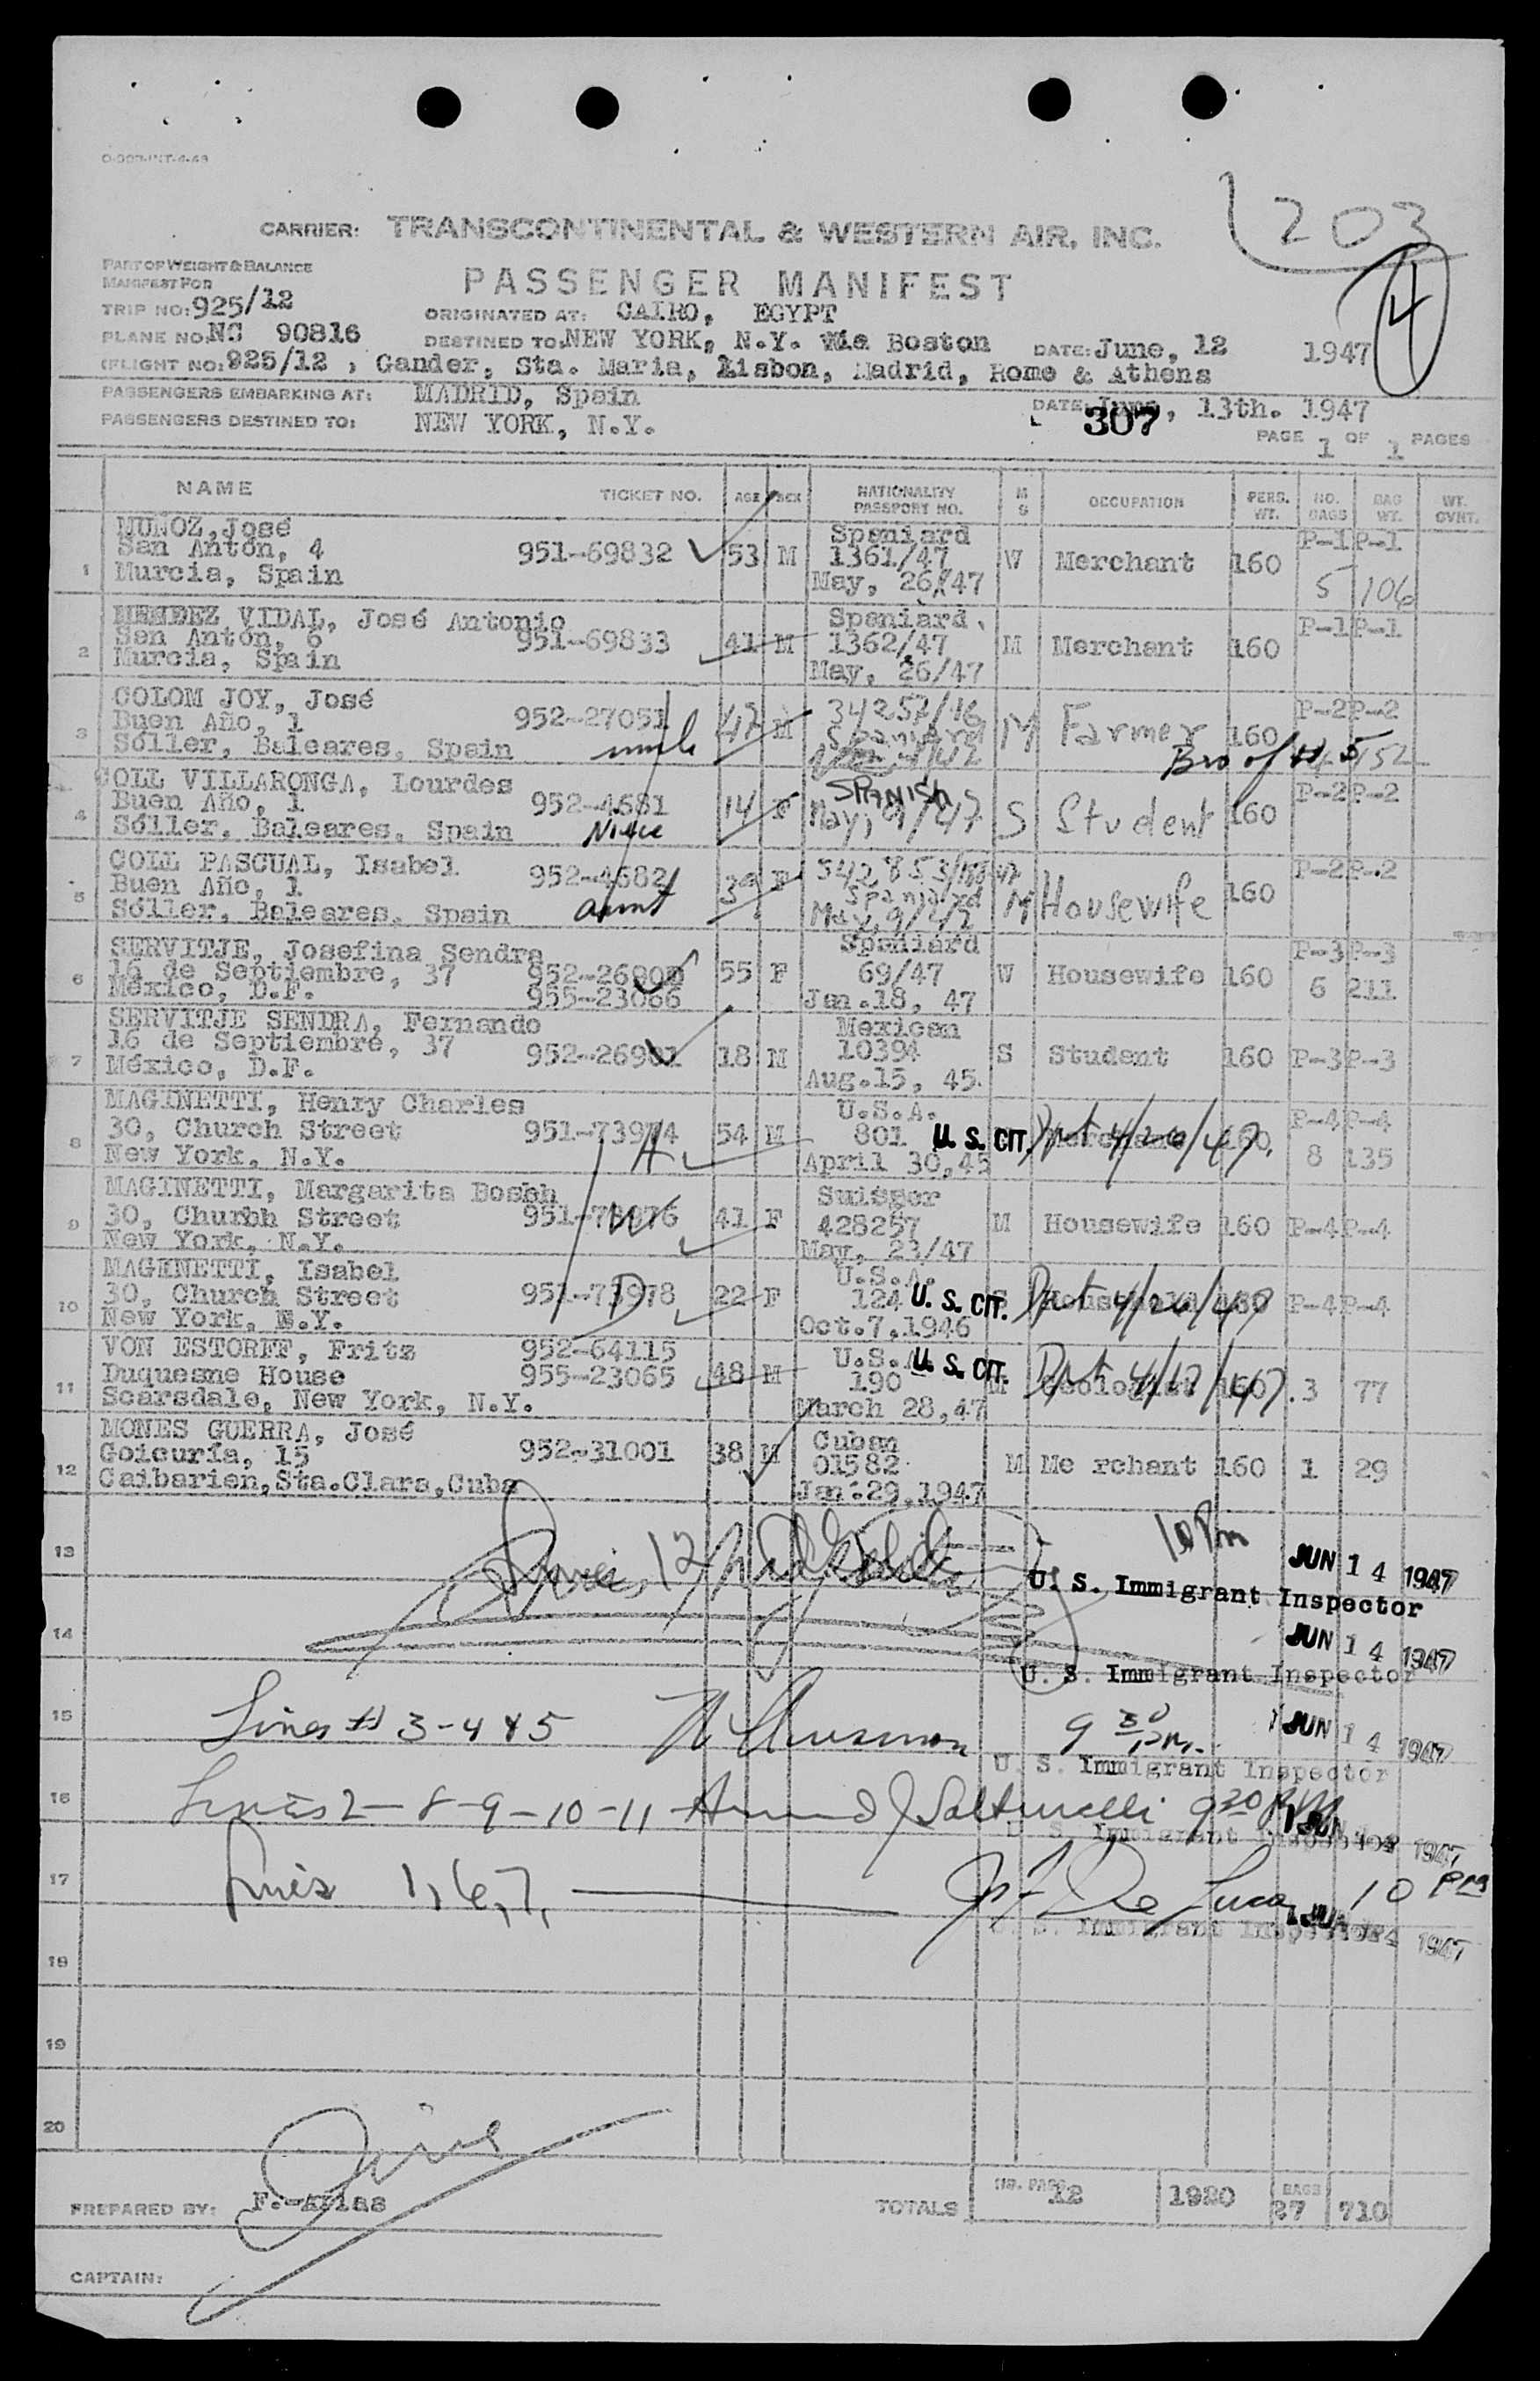 O-303-INT-4-43
203
CARRIER: TRANSCONTINENTAL & WESTERN AIR, INC.
4
PART OF WEIGHT & BALANCE
MANIFEST FOR
PASSENGER MANIFEST
TRIP NO: 925/12 ORIGINATED AT: CAIRO, EGYPT
PLANE NO: NC 90816 DESTINED TO: NEW YORK, N.Y. Via Boston DATE: June, 12 1947
(FLIGHT NO: 925/12 , Gander, Sta. Maria, Lisbon, Madrid, Rome & Athens
PASSENGERS EMBARKING AT: MADRID, Spain DATE: June, 13th. 1947
PASSENGERS DESTINED TO: NEW YORK, N.Y. 307
PAGE 1 OF 1 PAGES
NAME TICKET NO. AGE SEX NATIONALITY PASSPORT NO. M S OCCUPATION PERS. WT. NO. BAGS BAG WT. WT. OVRT.
MUÑOZ, José Spaniard P-1 P-1
San Antón, 4 951-69832 53 M 1361/47 W Merchant 160
1 Murcia, Spain May, 26/47 5 106
MENDEZ VIDAL, José Antonio Spaniard P-1 P-1
San Antón, 6 951-69833 41 M 1362/47 M Merchant 160
2 Murcia, Spain May, 26/47
COLOM JOY, José 34257/46 P-2 P-2
Buen Año, 1 952-27051 47 M Spaniard M Farmer 160
3 Sóller, Baleares, Spain uncle Bro of # 5 152
COLL VILLARONGA, Lourdes SPANISH P-2 P-2
Buen Año, 1 952-4681 14 F May, 9/47 S Student 160
4 Sóller, Baleares, Spain Niece
COLL PASCUAL, Isabel P-2 P-2
Buen Año, 1 952-4682 39 F Spaniard M Housewife 160
5 Sóller, Baleares, Spain aunt May, 9/47
SERVITJE, Josefina Sendra Spaniard P-3 P-3
16 de Septiembre, 37 952-26900 55 F 69/47 W Housewife 160
6 México, D.F. 955-23066 Jan.18, 47 6 211
SERVITJE SENDRA, Fernando Mexican
16 de Septiembre, 37 952-26901 18 M 10394 S Student 160 P-3 P-3
7 México, D.F. Aug.15, 45.
MAGINETTI, Henry Charles U.S.A. P-4 P-4
30, Church Street 951-73974 54 M 801 U. S. CIT. Dpt 4/26/47. Merchant 160
8 New York, N.Y. H April 30,45 8 135
MAGINETTI, Margarita Bosch Suisser
9 30, Church Street 951-73976 W 41 F 428257 M Housewife 160 P-4 P-4
New York, N.Y. May, 23/47
MAGINETTI, Isabel U.S.A.
10 30, Church Street 951-73978 D 22 F 124 U. S. CIT. Dpt 4/26/47 160 P-4 P-4
New York, N.Y. Oct.7,1946
VON ESTORFF, Fritz 952-64115 U.S.A. U. S. CIT.
11 Duquesne House 955-23065 48 M 190 M Dpt 4/17/47. Geologist 160 3 77
Scarsdale, New York, N.Y. March 28,47
MONES GUERRA, José Cuban
Goicuría, 15 952-31001 38 M 01582 M Me rchant 160 1 29
12 Caibarien, Sta.Clara, Cuba Jan.29,1947
10 Pm
13 JUN 14 1947
U. S. Immigrant Inspector
14 JUN 14 1947
U. S. Immigrant Inspector
15 Lines # 3-4 & 5 9 30 P.M. JUN 14 1947
U. S. Immigrant Inspector
16 Lines 2-8-9-10-11 9 30 PM JUN 14 1947
U. S. Immigrant Inspector
17 Lines 1,6,7, J. F. De Luca 10 PM
U. S. Immigrant Inspector JUN 14 1947
18
19
20
PREPARED BY: F. Arias TOTALS NO. PASS. 12 1920 BAGS 27 710
CAPTAIN: